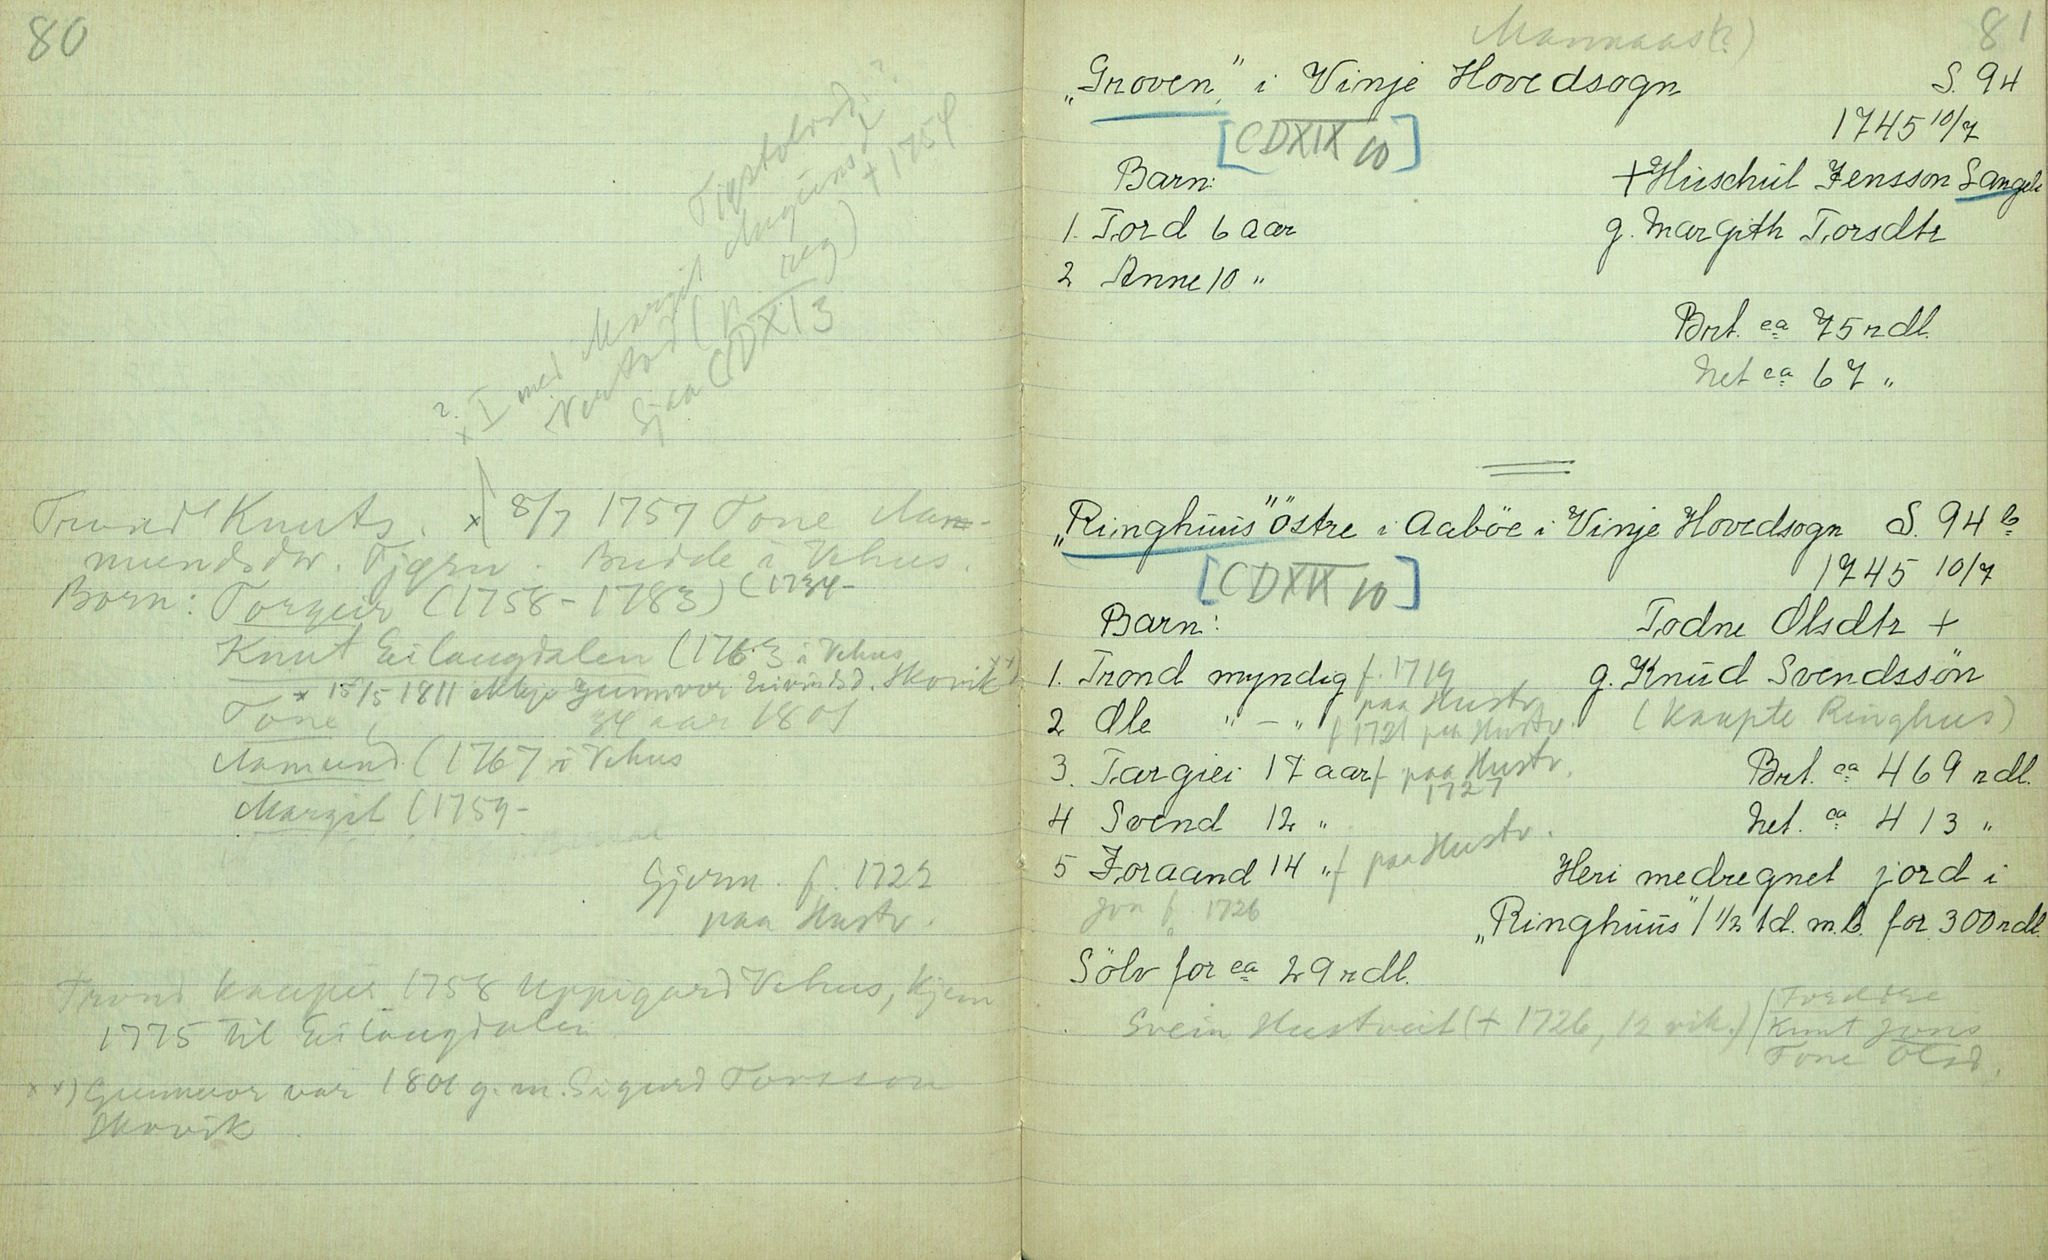 80
Tjostolvsd?
I med Margit Auguns
Nertod (p. reg) + 1754
Sjaa CDXI 3
Trond Knuts. x 8/7 1757 Tone Aa-
mundsdtr. Budde i Vehus.
Born: Torgeir (1758-1783) (1734-
Knut Eilaugdalen (1763 i Vehus
x 15/5 1811 Gunnvor Eivindsd. Skovik xx)
Tone, 34 aar 1801
Aamund (1767 i Vehus
Margit (1759-
Gjerm. f. 1729
paa Hustv.
Trond kaupir 1758 Uppigard Vehus, kjem
1775 til Eilaugdalen
xx) Gunnvor var 1801 g.m. Sigurd Torsson
Skovik
81
Mannaas(?)
„Groven" i Vinje Hovedsogn S. 94
[CDXIX 10] 1745 10/7
Barn: + Huschul Jensson
1. Tord 6 aar g. Margith Torsdtr
2 Anne 10 "
Brt. ca 75 rdl.
Net ca 67 "
„Ringhuus" östre i Aaböe i Vinje Hovedsogn S. 94 b
[CDXIX 10] 1745 10/7
Barn: Todne Olsdtr +
1. Trond myndig f. 1719 paa Hustv. g. Knud Svendssön
2 Ole " - " f 1721 paa Hustv. (Kaupte Ringhus)
3. Targiei 17 aar f paa Hustv. 1727 Brt. ca 469 rdl.
4 Svend 12 " Net. ca 413 "
5 Joraand 14 " f paa Hustv. Heri medregnet jord i
Jon f. 1726 „Ringhuus" 1 1/2 td. m.b. for 300 rdl.
Sölv for ca 29 rdl.
Svein Hustveit (+ 1726, 12 vik.) Foreldre
Knut Jons
Tone Olsd.